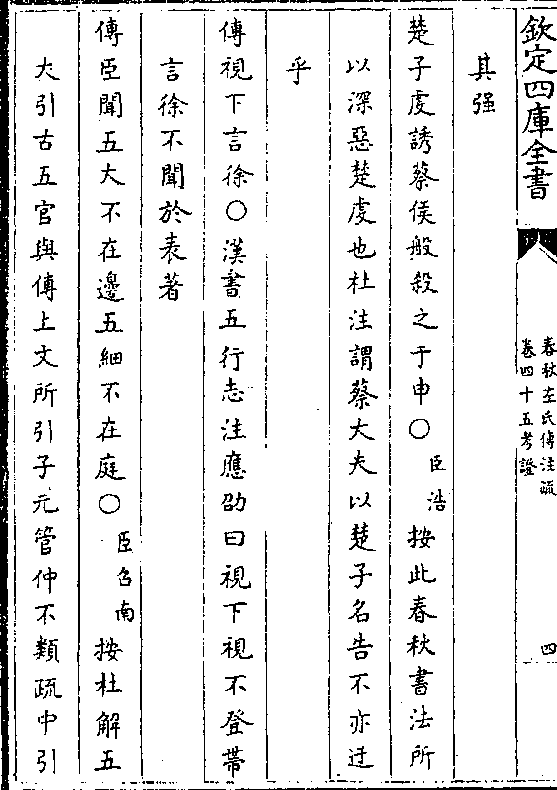 欽定四庫全書
春秋左氏傳注疏
卷四十五考證
四
其强
楚子虔誘蔡侯般殺之于申〇臣浩按此春秋書法所
以深惡楚虔也杜注謂蔡大夫以楚子名告不亦迂
乎
傳視下言徐〇漢書五行志注應劭曰視下視不登帶
言徐不聞於表著
傳臣聞五大不在邊五細不在庭〇臣召南按杜解五
大引古五官與傳上文所引子元管仲不類疏中引